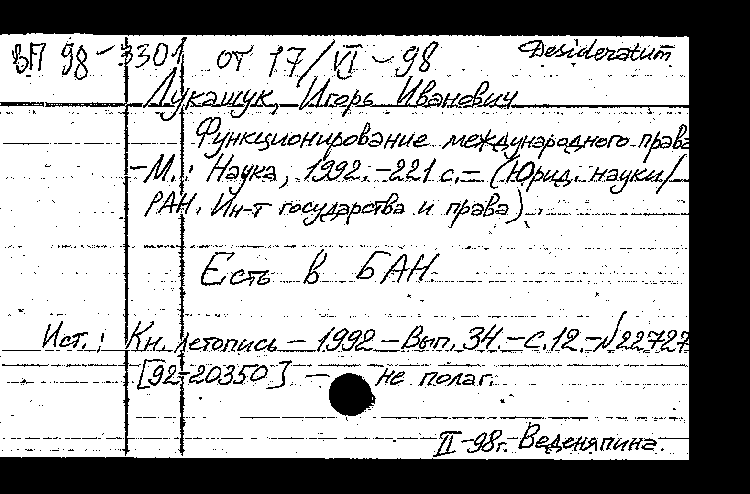 ВП 98-3301 от 17/VI-98 Desideratum
Лукашук, Игорь Иванович
Функционирование международного права
-М.: Наука, 1992.-221 с.- (Юрид. науки/
РАН. Ин-т государства и права).
Есть в БАН.
Ист.: Кн. летопись - 1992 - Вып. 34.-С.12.-№22727
[92-20350]. - не полаг.
II-98г. Веденяпина.